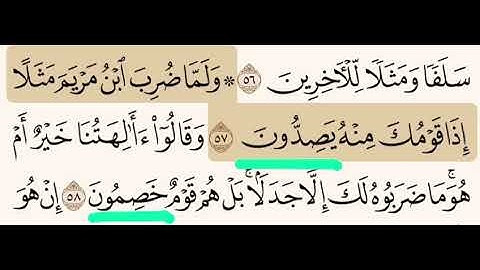 سَلَفًا وَمَثَلًا لِّلْآخِرِينَ ٥٦ ۞ وَلَمَّا ضُرِبَ ابْنُ مَرْيَمَ مَثَلًا
إِذَا قَوْمُكَ مِنْهُ يَصِدُّونَ ٥٧ وَقَالُوٓا۟ ءَأَٰلِهَتُنَا خَيْرٌ أَمْ
هُوَ ۚ مَا ضَرَبُوهُ لَكَ إِلَّا جَدَلًۢا ۚ بَلْ هُمْ قَوْمٌ خَصِمُونَ ٥٨ إِنْ هُوَ